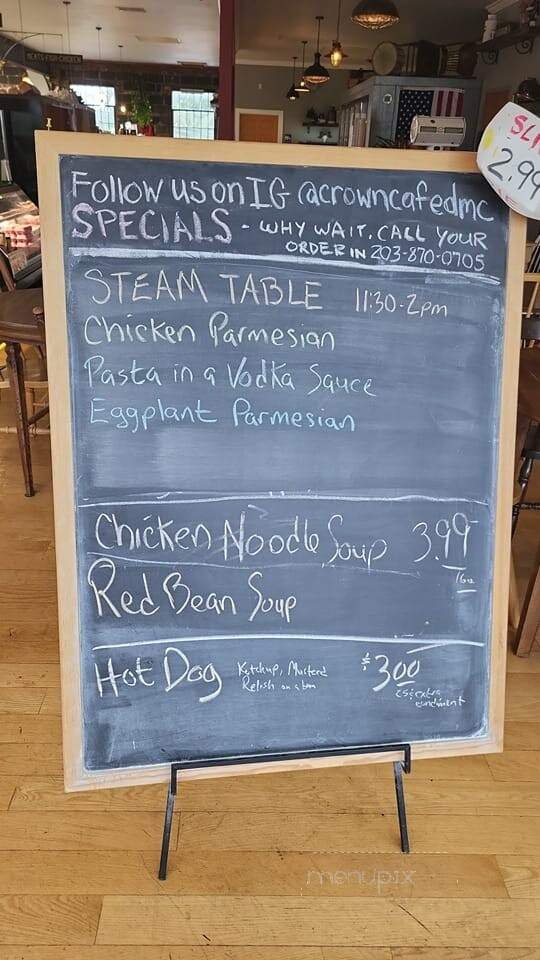 MEATS FISH CHICKEN
FOLLOW US ON IG @crowncafedmc
SPECIALS - WHY WAIT, CALL YOUR
ORDER IN 203-870-0705
2.99
STEAM TABLE 11:30-2pm
Chicken Parmesian
Pasta in a Vodka Sauce
Eggplant Parmesian
Chicken Noodle Soup 3.99
16oz
Red Bean Soup
Hot Dog Ketchup, Mustard $3.00
Relish on a bun
extra
condiment
menupix